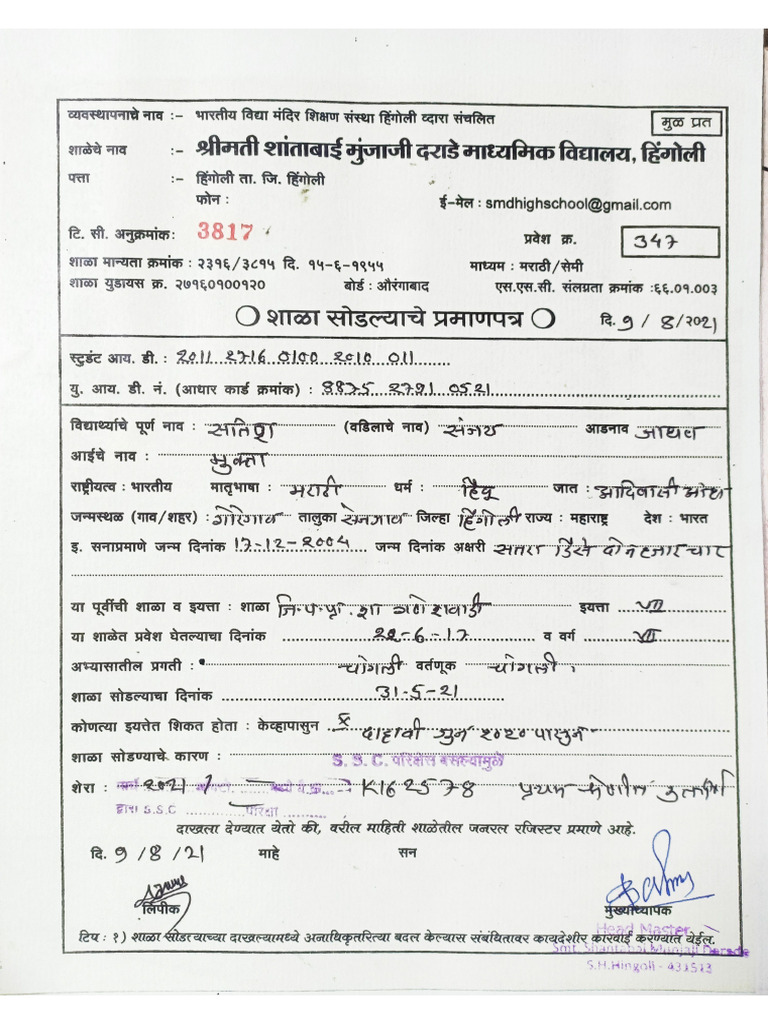 व्यवस्थापनाचे नाव :- भारतीय विद्या मंदिर शिक्षण संस्था हिंगोली व्दारा संचलित
मुळ प्रत
शाळेचे नाव :- श्रीमती शांताबाई मुंजाजी दराडे माध्यमिक विद्यालय, हिंगोली
पत्ता :- हिंगोली ता. जि. हिंगोली
फोन : ई-मेल : smdhighschool@gmail.com
टि. सी. अनुक्रमांक: 3817 प्रवेश क्र. 347
शाळा मान्यता क्रमांक : २३१६/३८१५ दि. १५-६-१९५५ माध्यम : मराठी/सेमी
शाळा युडायस क्र. २७१६०१००१२० बोर्ड : औरंगाबाद एस.एस.सी. संलग्रता क्रमांक :६६.०१.००३
शाळा सोडल्याचे प्रमाणपत्र दि. 9 / 8 / 2021
स्टुडंट आय. डी. : 2011 2716 0100 2010 011
यु. आय. डी. नं. (आधार कार्ड क्रमांक) : 8875 2791 0521
विद्यार्थ्याचे पूर्ण नाव : सतिश (वडिलाचे नाव) संजय आडनाव जाधव
आईचे नाव : मुक्ता
राष्ट्रीयत्व : भारतीय मातृभाषा : मराठी धर्म : हिंदू जात : आदिवासी
जन्मस्थळ (गाव/शहर) : गोरेगाव तालुका सेनगाव जिल्हा हिंगोली राज्य : महाराष्ट्र देश : भारत
इ. सनाप्रमाणे जन्म दिनांक 17-12-2004 जन्म दिनांक अक्षरी सतरा डिसे दोन हजार चार
या पूर्वीची शाळा व इयत्ता : शाळा जि.प.प्रा.शा गणेशवाडी इयत्ता VII
या शाळेत प्रवेश घेतल्याचा दिनांक 22-6-17 व वर्ग VII
अभ्यासातील प्रगती : चांगली वर्तणूक चांगली
शाळा सोडल्याचा दिनांक 31-5-21
कोणत्या इयत्तेत शिकत होता : केव्हापासुन X दहावी जुन २०२० पासुन
शाळा सोडण्याचे कारण : S. S. C. परिक्षेस बसल्यामुळे
शेरा : 2021 K162578 प्रथम श्रेणीत उत्तीर्ण
द्वारा S.S.C परिक्षा
दाखला देण्यात येतो की, वरील माहिती शाळेतील जनरल रजिस्टर प्रमाणे आहे.
दि. 9 / 8 / 21 माहे सन
लिपीक मुख्याध्यापक
Head Master
टिप : १) शाळा सोडत्याच्या दाखल्यामध्ये अनाधिकृतरित्या बदल केल्यास संबंधितावर कायदेशीर कारवाई करण्यात येईल.
Smt. Shantabai Munjaji Darade
S.H.Hingoli - 431513